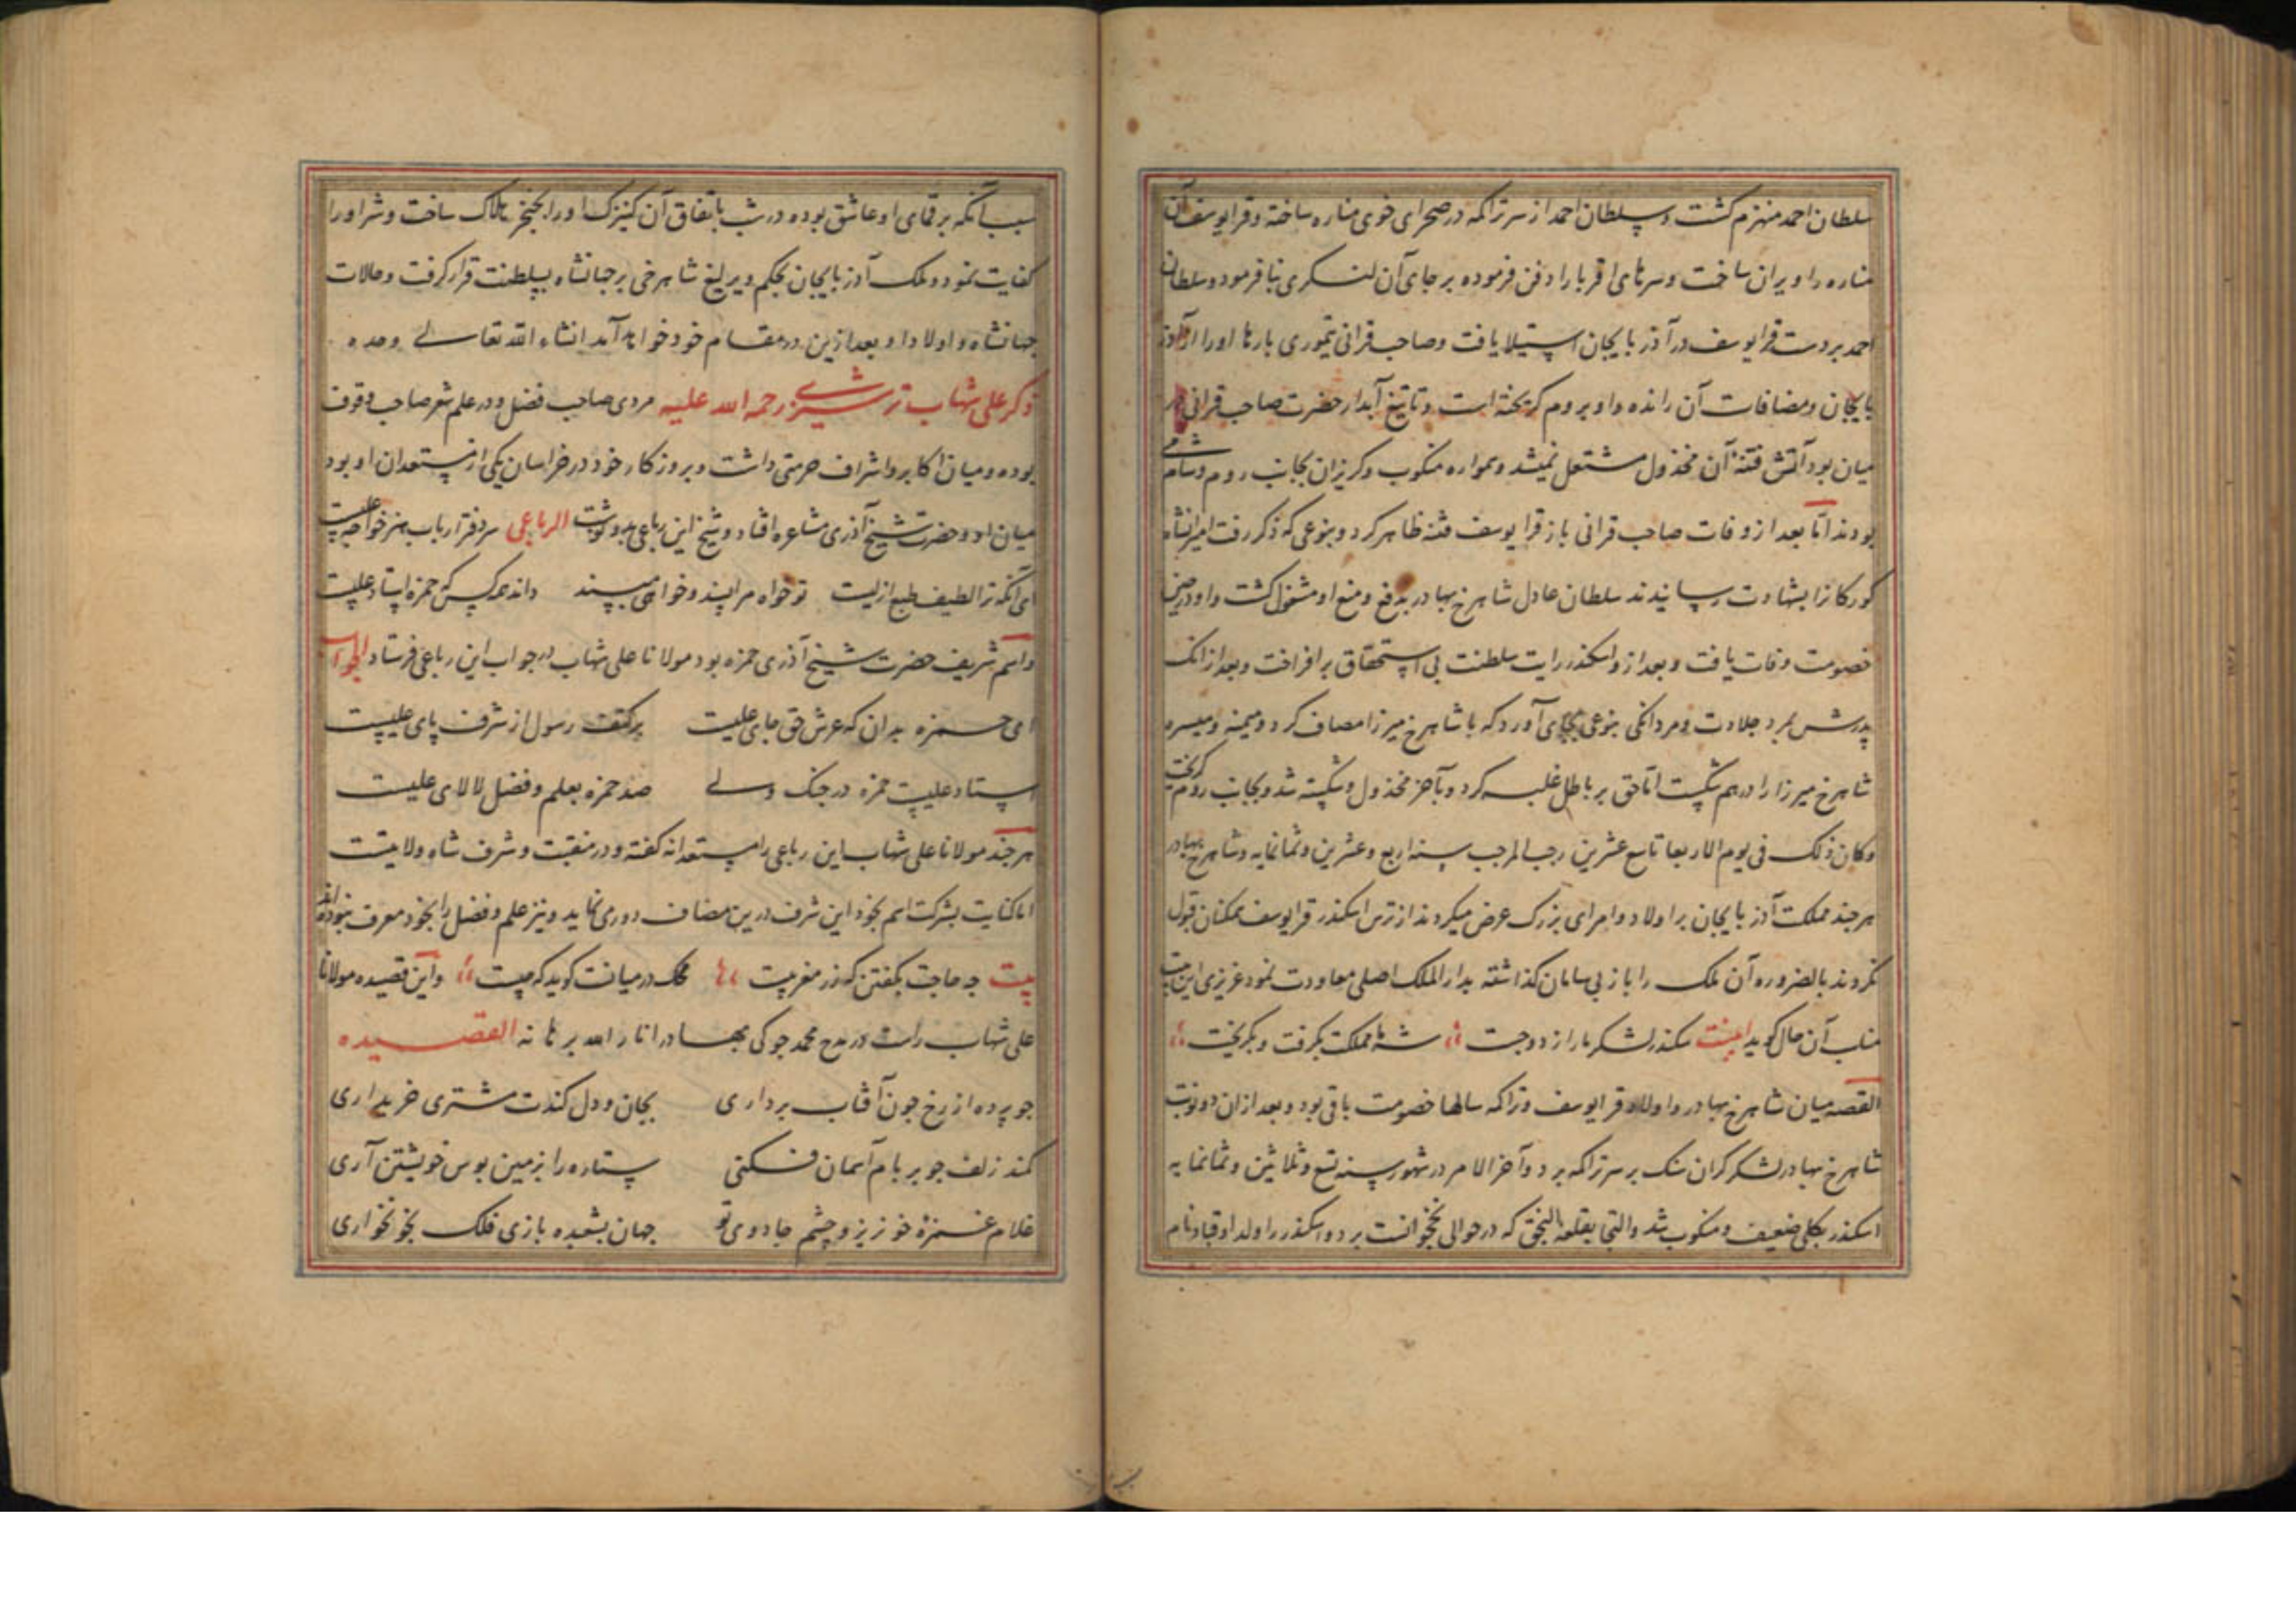 سلطان احمد منهزم کشت و سلطان احمد از سر تراکمه در صحرای خوی مناره ساخته و قرا یوسف آن
مناره را ویران ساخت و سرهای اقربا را دفن فرموده بر جای آن لنکری بنا فرمود و سلطان
احمد بر دست قرا یوسف در آذربایجان استیلا یافت و صاحب قرانی تیموری بارها او را از آذر
بایجان و مضافات آن رانده و او بروم کریخته است و تا تیغ آبدار حضرت صاحب قرانی در
میان بود آتش فتنه آن مخذول مشتعل نمیشد و همواره منکوب و کریزان بجانب روم و شام می
بودند اما بعد از وفات صاحب قرانی باز قرا یوسف فتنه ظاهر کرد و بنوعی که ذکر رفت امیرانشاه
کورکانرا بشهادت رسانیدند سلطان عادل شاهرخ بهادر بدفع و منع او مشغول کشت و او در حین
خصومت وفات یافت و بعد ازو اسکندر رایت سلطنت بی استحقاق بر افراخت و بعد از انک
پدرش بمرد جلادت و مردانکی بنوعی بجای آورد که با شاهرخ میرزا مصاف کرد و میمنه و میسره
شاهرخ میرزا را درهم شکست اما حق بر باطل غلبه کرد و بآخر مخذول و شکسته شد و بجانب روم کریخت
وکان ذلک فی یوم الاربعا تاسع عشرین رجب المرجب سنه اربع و عشرین و ثمانمایه و شاهرخ بهادر
هرجند مملکت آذربایجان بر اولاد و امرای بزرک عرض میکردند از ترس اسکندر قرا یوسف ممکنان قبول
نکردند بالضروره آن ملک را باز بی سامان کذاشته بدار الملک اصلی معاودت نمود عزیزی این بیت
مناسب آن حال کوید بیت سکندر لشکر ما را زد و جست شه ما مملکت بکرفت و بکریخت
القصه میان شاهرخ بهادر و اولاد قرا یوسف و تراکمه سالها خصومت باقی بود و بعد ازان دو نوبت
شاهرخ بهادر لشکر کران سنک بر سر تراکمه برد و آخر الامر در شهور سنه تسع و ثلاثین و ثمانمایه
اسکندر بکلی ضعیف و منکوب شد و التجا بقلعه النجق که در حوالی نخجوانست برد و اسکندر را ولد او قباد نام
سبب آنکه بر قمای او عاشق بوده در شب باتفاق آن کنیزک او را بخنجر هلاک ساخت و شر او را
کفایت نمود و ملک آذربایجان بحکم و یرلیغ شاهرخی بر جهانشاه بسلطنت قرار کرفت و حالات
جهانشاه و اولاد او بعد ازین در مقام خود خواهد آمد انشاء الله تعالی وحده
ذکر علی شهاب ترشیزی رحمه الله علیه مردی صاحب فضل و در علم شعر صاحب وقوف
بوده و میان اکابر و اشراف حرمتی داشت و بروزکار خود در خراسان یکی از مستعدان او بود
میان او و حضرت شیخ آذری مشاعره افتاد و شیخ این رباعی بدو نوشت الرباعی سر دفتر ارباب هنر خواجه علیست
ای آنکه ترا لطیف طبع ازلیت تو خواه مرا پسند و خواهی مپسند داند همه کس که حمزه استاد علیست
و اسم شریف حضرت شیخ آذری حمزه بود مولانا علی شهاب در جواب این رباعی فرستاد الجواب
ای حمزه بدان که عرش حق جای علیت بر کتف رسول از شرف پای علیست
استاد علیست حمزه در جنک ولی صد حمزه بعلم و فضل لالای علیست
هرجند مولانا علی شهاب این رباعی را مستعدانه کفته و در منقبت و شرف شاه ولایتست
اما کنایت بشرکت اسم بخود این شرف درین مضاف دوری نماید و نیز علم و فضل را بخود معرف نبوده اند
بیت چه حاجت بکفتن که زر مغربیت محک در میانت کوید که چیست و این قصیده مولانا
علی شهاب راست در مدح محمد جوکی بهادر انار الله برهانه القصیده
جو پرده از رخ جون آفتاب برداری بجان و دل کندت مشتری خریداری
کمند زلف جو بر بام آسمان فکنی ستاره را بزمین بوس خویشتن آری
غلام غمزه خونریز و چشم جادوی تو جهان بشعبده بازی فلک بخونخواری